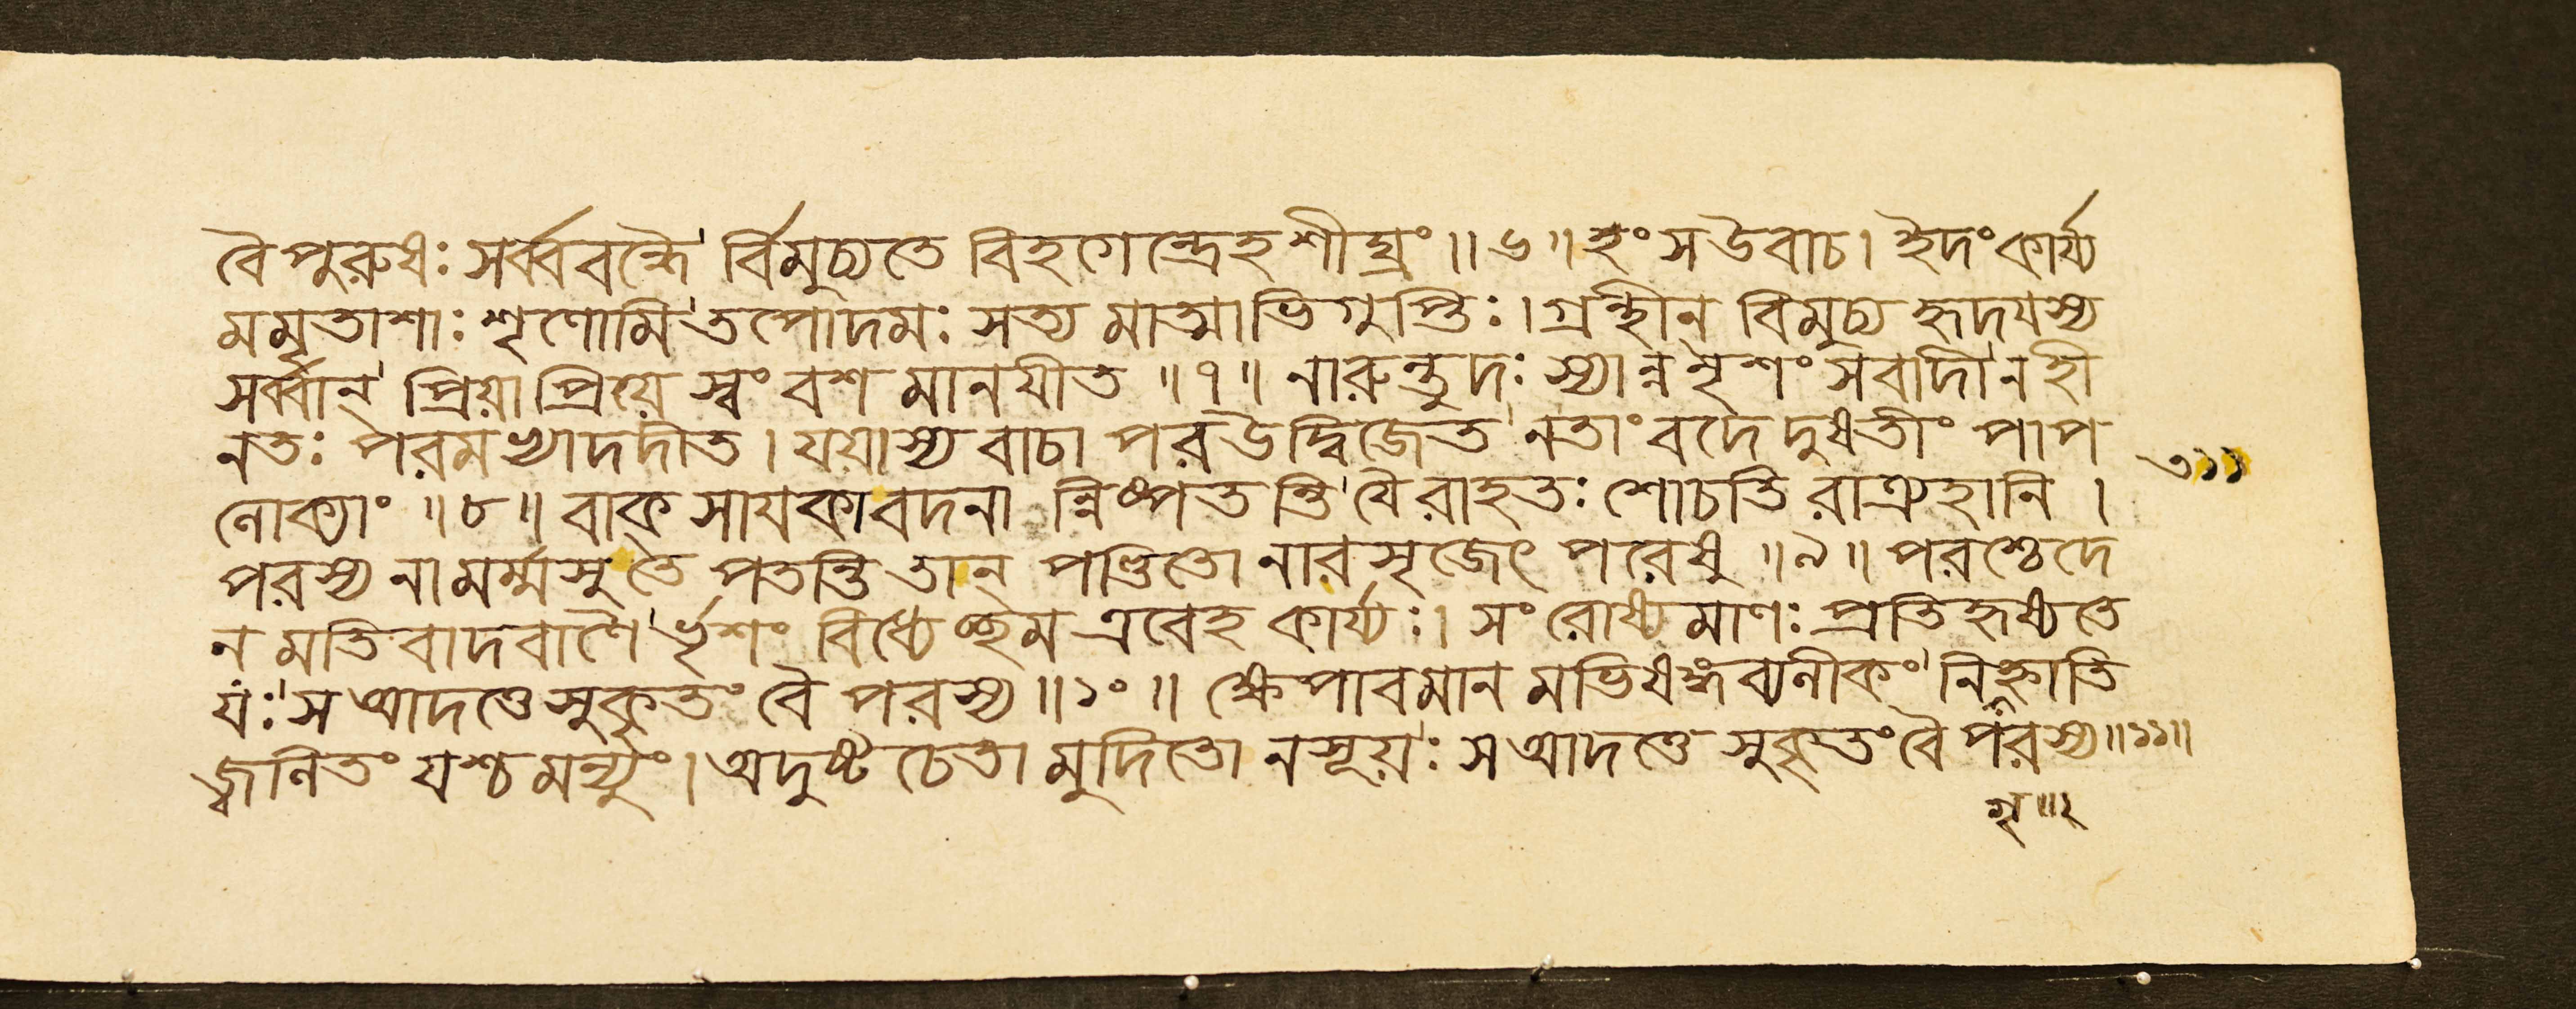 বৈপুরুষঃ সর্ব্ববন্ধৈ র্বিমুচ্যতে বিহগেন্দ্রেহশীঘ্রং ॥৬॥ হংসউবাচ। ইদংকার্য্য
মমৃতাশাঃ শৃণোমি তপোদমঃ সত্য মাত্মাভিগুপ্তিঃ। গ্রন্থীন্ বিমুচ্য হৃদযস্য
সর্ব্বান্ প্রিয়াপ্রিয়ে স্বং বশ মানযীত ॥৭॥ নারুন্তুদঃ স্যান্ননৃশংসবাদী নহী
নতঃ পরমভ্যাদদীত। যয়াস্য বাচা পরউদ্বিজেত নতাংবদে দুষতীং পাপ
লোক্যাং ॥৮॥ বাক্ সাযকাবদনা ন্নিষ্পতন্তি যৈরাহতঃ শোচতি রাত্র্যহানি।
পরস্য নামর্ম্মসুতে পতন্তি তান্ পণ্ডিতো নারসৃজেৎ পরেষু ॥৯॥ পরশ্চেদে
ন মতিবাদবাণৈ র্ভৃশং বিধ্যেচ্ছম এবেহ কার্য্যঃ। সংরোষ্যমাণঃ প্রতিহৃষ্যতে
যঃ স আদত্তে সুকৃতং বৈ পরস্য ॥১০॥ ক্ষেপাবমান মভিষঙ্গব্যনীকং নিগৃহ্ণাতি
জ্বনিতং যশ্চ মন্যুং। অদুষ্ট চেতা মুদিতো নসূয়ঃ স আদত্তে সুকৃতং বৈ পরস্য ॥১১॥